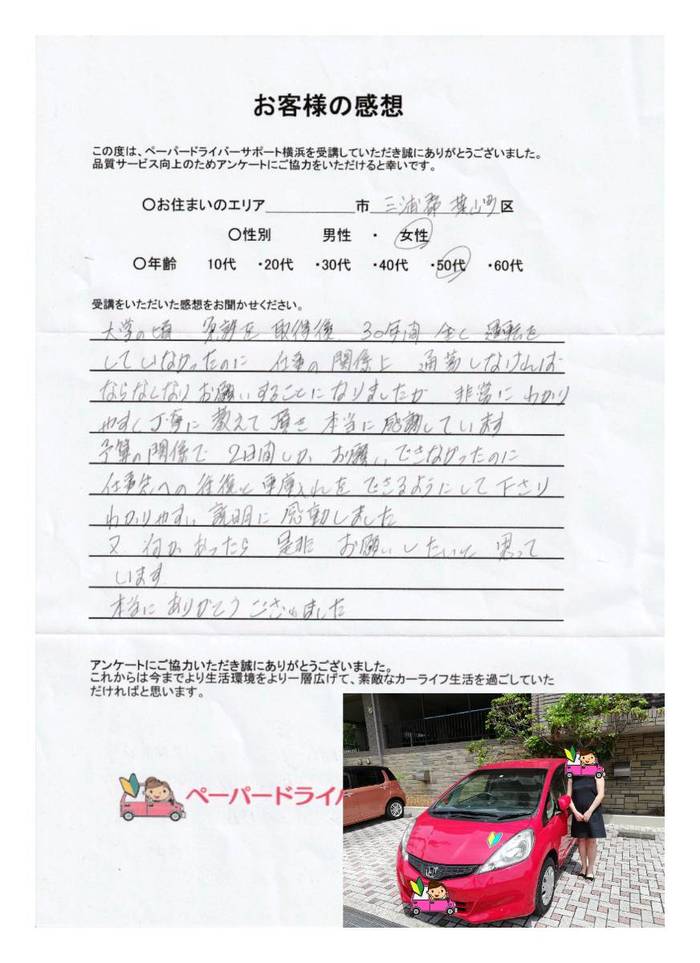 お客様の感想
この度は、ペーパードライバーサポート横浜を受講していただき誠にありがとうございました。
品質サービス向上のためアンケートにご協力をいただけると幸いです。
〇お住まいのエリア____________市 三浦郡 葉山町区
〇性別 男性 ・ 女性
〇年齢 10代 ・20代 ・30代 ・40代 ・50代 ・60代
受講をいただいた感想をお聞かせください。
大学の頃 免許を 取得後 30年間 全く 運転を
していなかったのに 仕事の関係上 通勤しなければ
ならなくなり お願いすることになりましたが 非常に わかり
やすく丁寧に 教えて頂き 本当に 感謝しています
予算の関係で 2日間しか お願いできなかったのに
仕事先への 往復と 車庫入れを できるようにして下さり
わかりやすい 説明に 感動しました
又 何かあったら 是非 お願いしたいと 思って
います
本当に ありがとう ございました
アンケートにご協力いただき誠にありがとうございました。
これからは今までより生活環境をより一層広げて、素敵なカーライフ生活を過ごしていた
だければと思います。
ペーパードライバ